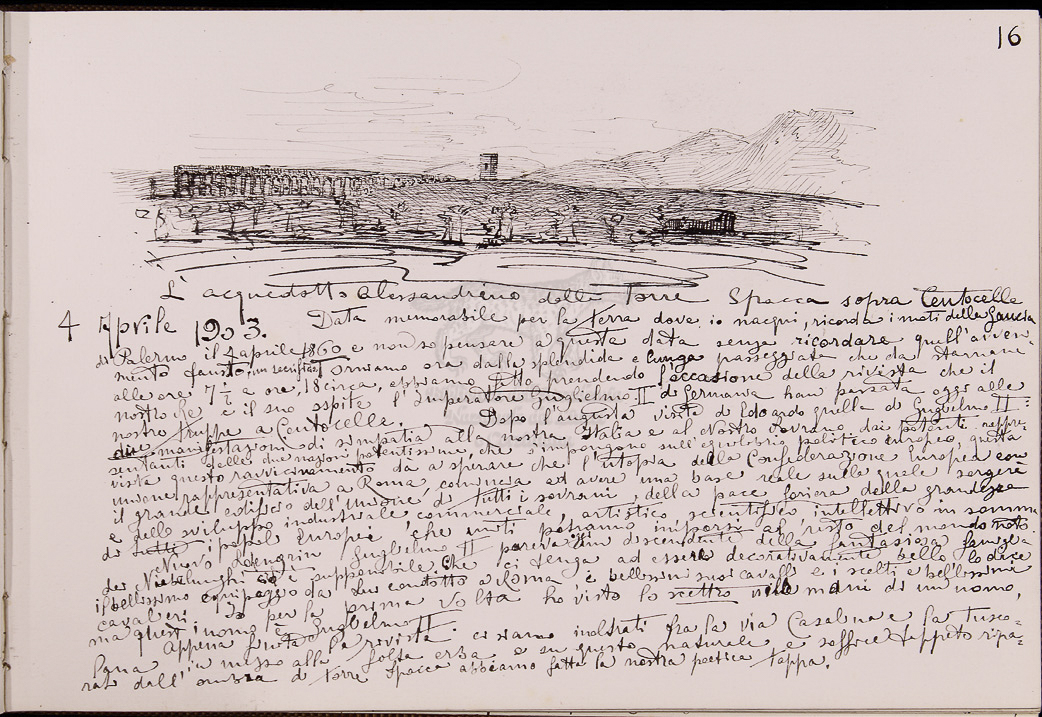 16
L'acquedotto Alessandrino dalla Torre Spacca sopra Centocelle
4 Aprile 1903. Data memorabile per la terra dove io nacqui, ricorda i moti della Gancia
di Palermo il 4 aprile 1860 e non so pensare a questa data senza ricordare quell'avveni-
mento fausto, un sacrifizio! Torniamo ora dalla splendida e lunga passeggiata che da stamane
alle ore 7½ a ore 18 circa, abbiamo fatto prendendo l'occasione della rivista che il
nostro Re e il suo ospite l'Imperatore Guglielmo II di Germania han passata oggi alle
nostre truppe a Centocelle. Dopo l'augusta visita di Edoardo quella di Guglielmo II:
due manifestazioni di simpatia alla nostra Italia e al Nostro Sovrano dai potenti rappre-
sentanti delle due nazioni potentissime, che s'impongono sull'equilibrio politico europeo, questa
visita questo ravvicinamento dà a sperare che l'utopia della Confederazione Europea con
unione rappresentativa a Roma, comincia ad avere una base reale sulla quale sorgerà
il grande edificio dell'unione di tutti i sovrani, della pace foriera della grandezza
e dello sviluppo industriale, commerciale, artistico scientifico intellettivo in somma
di tutti i popoli Europei, che uniti potranno imporsi al resto del mondo noto.
Nuovo Loengrin Guglielmo II pareva un discendente della fantasiosa famiglia
dei Niebelunghi ed è supponibile che ci tenga ad essere decorativamente bello lo dice
il bellissimo equipaggio da lui condotto a Roma i bellissimi suoi cavalli e i scelti e bellissimi
cavalieri. Io per la prima volta ho visto lo scettro nelle mani di un uomo,
ma quest'uomo è Guglielmo II.
Appena finita la rivista ci siamo inoltrati fra la via Casalina e la Tusco-
lana in mezzo alla folta erba e su questo naturale e soffice tappeto ripa-
rati dall'ombra di Torre Spacca abbiamo fatta la nostra poetica tappa.